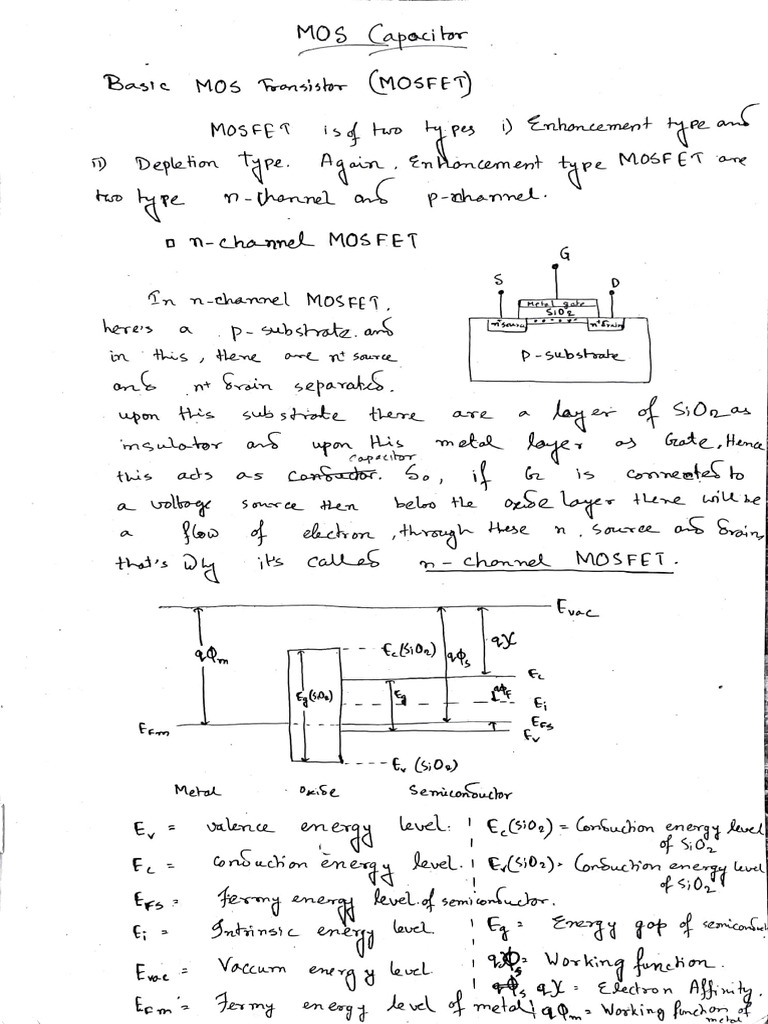 MOS Capacitor
Basic MOS Transistor (MOSFET)
MOSFET is of two types i) Enhancement type and
ii) Depletion Type. Again, Enhancement type MOSFET are
two type n-channel and p-channel.
n-channel MOSFET
G
S D
Metal gate
SiO2
n+ source n+ drain
P-substrate
In n-channel MOSFET,
here's a p-substrate and
in this, there are n+ source
and n+ drain separated.
upon this substrate there are a layer of SiO2 as
insulator and upon this metal layer as Gate, Hence
capacitor
this acts as conductor. So, if G is connected to
a voltage source then below the oxide layer there will be
a flow of electron, through these n, source and drain,
that's why it's called n-channel MOSFET.
Evac
qΦm Ec(SiO2) qΦs qX
Ec
Eg(SiO2) Eg qΦF
Ei
EFm EFs
Ev
Ev (SiO2)
Metal Oxide Semiconductor
Ev = valence energy level. Ec(SiO2) = Conduction energy level
of SiO2
Ec = conduction energy level. Ev(SiO2) = Conduction energy level
of SiO2
EFs = Fermy energy level of semiconductor.
Ei = Intrinsic energy level. Eg = Energy gap of semiconduc
Evac = Vaccum energy level. qΦs = Working function.
qΦs qX = Electron Affinity.
EFm = Fermy energy level of metal qΦm = Working function of
metal